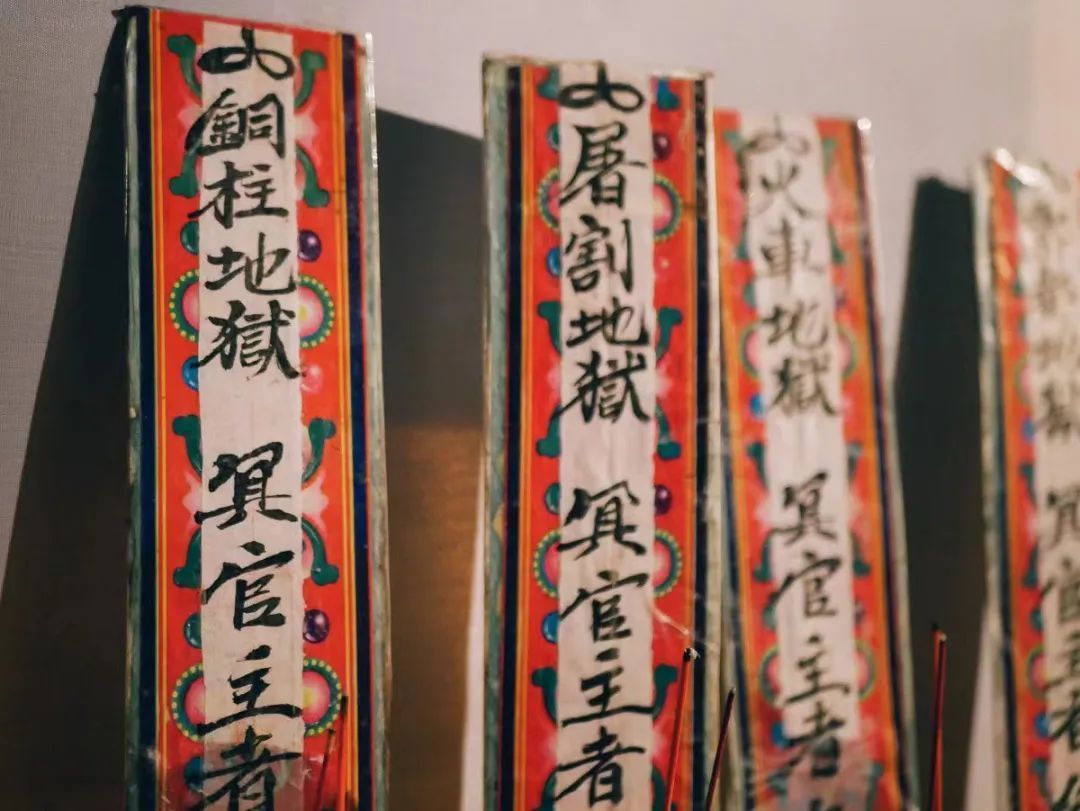 銅柱地獄 冥官主者
屠割地獄 冥官主者
火車地獄 冥官主者
地獄 冥官主者